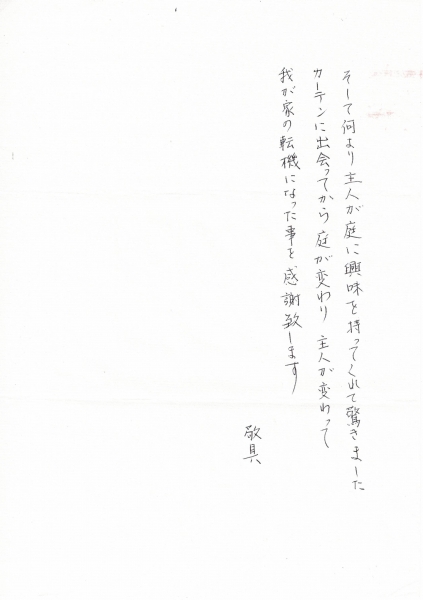 そして何より主人が庭に興味を持ってくれて驚きました
カーテンに出会ってから庭が変わり 主人が変わって
我が家の転機になった事を感謝致します
敬具